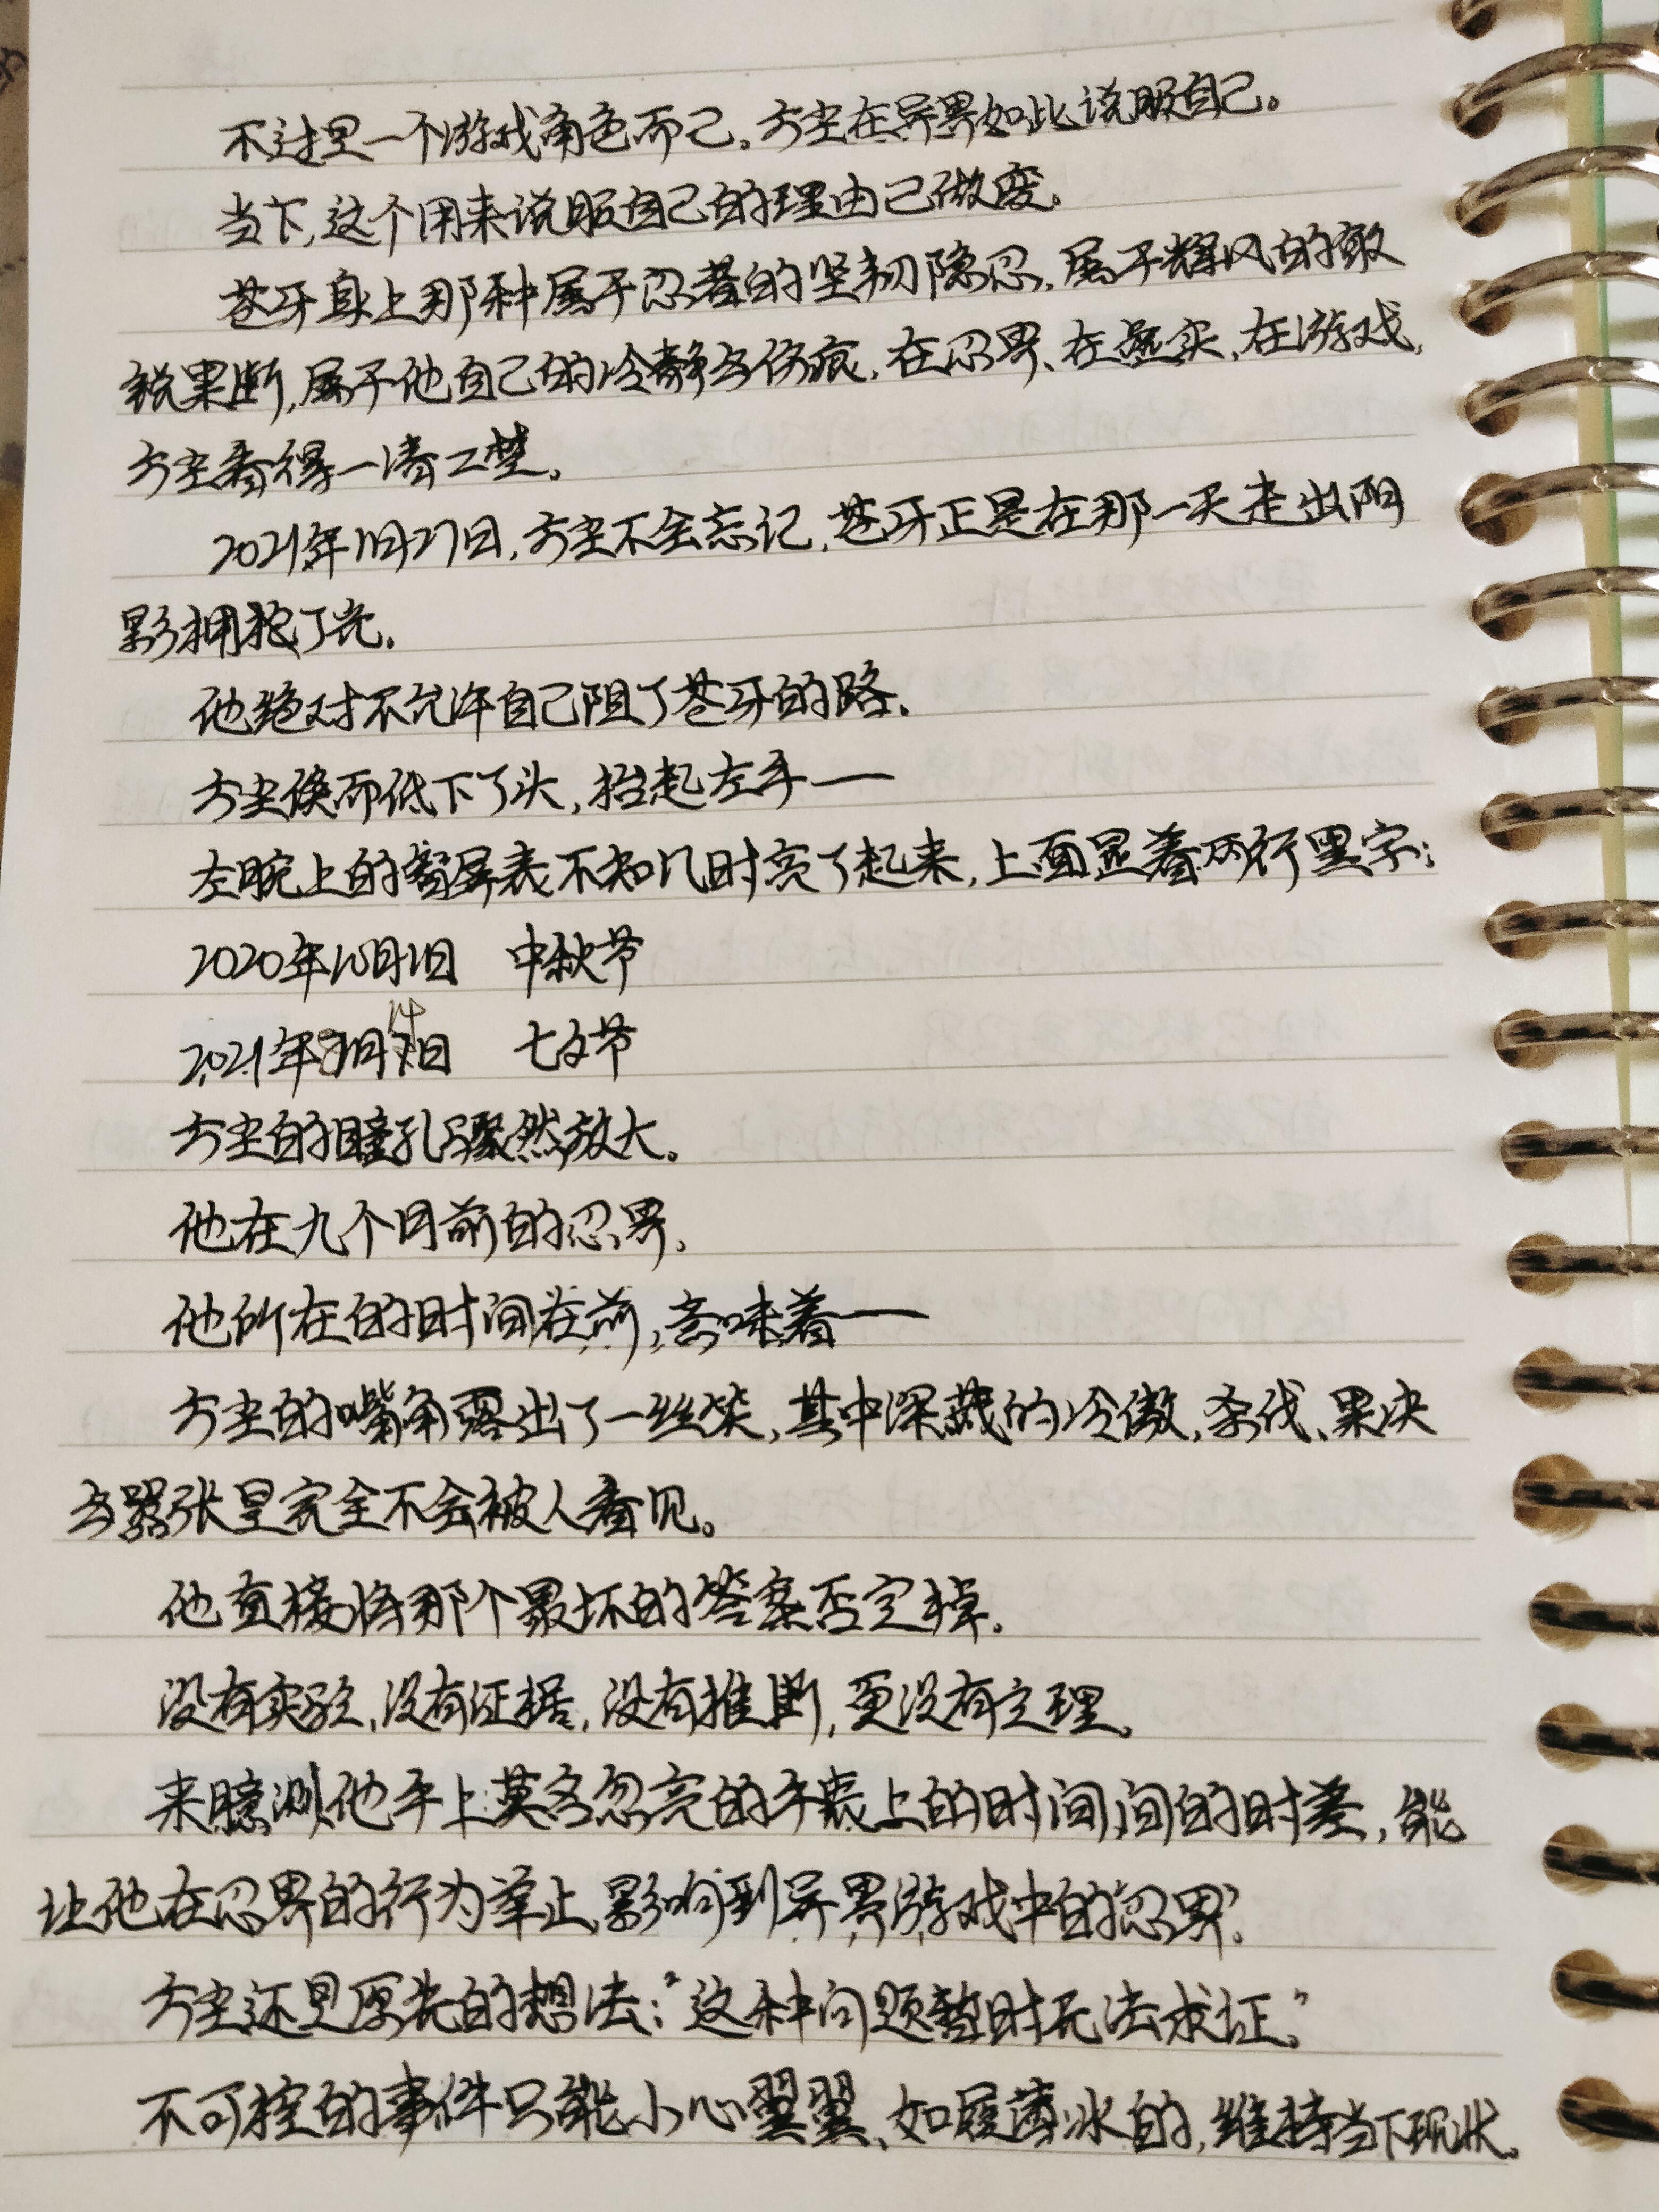 不过是一个游戏角色而已。方尘在异界如此说服自己。
当下,这个用来说服自己的理由已作废。
苍牙身上那种属于忍者的坚韧隐忍,属于辉风的敏
锐果断,属于他自己的冷静与伤痕,在忍界、在现实、在游戏,
方尘看得一清二楚。
2021年1月27日,方尘不会忘记,苍牙正是在那一天走出阴
影拥抱了光。
他绝对不允许自己阻了苍牙的路。
方尘倏而低下了头,抬起左手——
左腕上的智屏表不知几时亮了起来,上面显着两行黑字:
2020年10月1日 中秋节
2021年8月14日 七夕节
方尘的瞳孔骤然放大。
他在九个月前的忍界。
他所在的时间在前,意味着——
方尘的嘴角露出了一丝笑,其中深藏的冷傲、杀伐、果决
与嚣张是完全不会被人看见。
他直接将那个最坏的答案否定掉。
没有实验,没有证据,没有推断,更没有定理。
来臆测他手上莫名忽亮的手表上的时间间的时差,能
让他在忍界的行为举止影响到异界游戏中的“忍界”。
方尘还是原先的想法:“这种问题暂时无法求证。”
不可控的事件只能小心翼翼、如履薄冰的,维持当下现状。